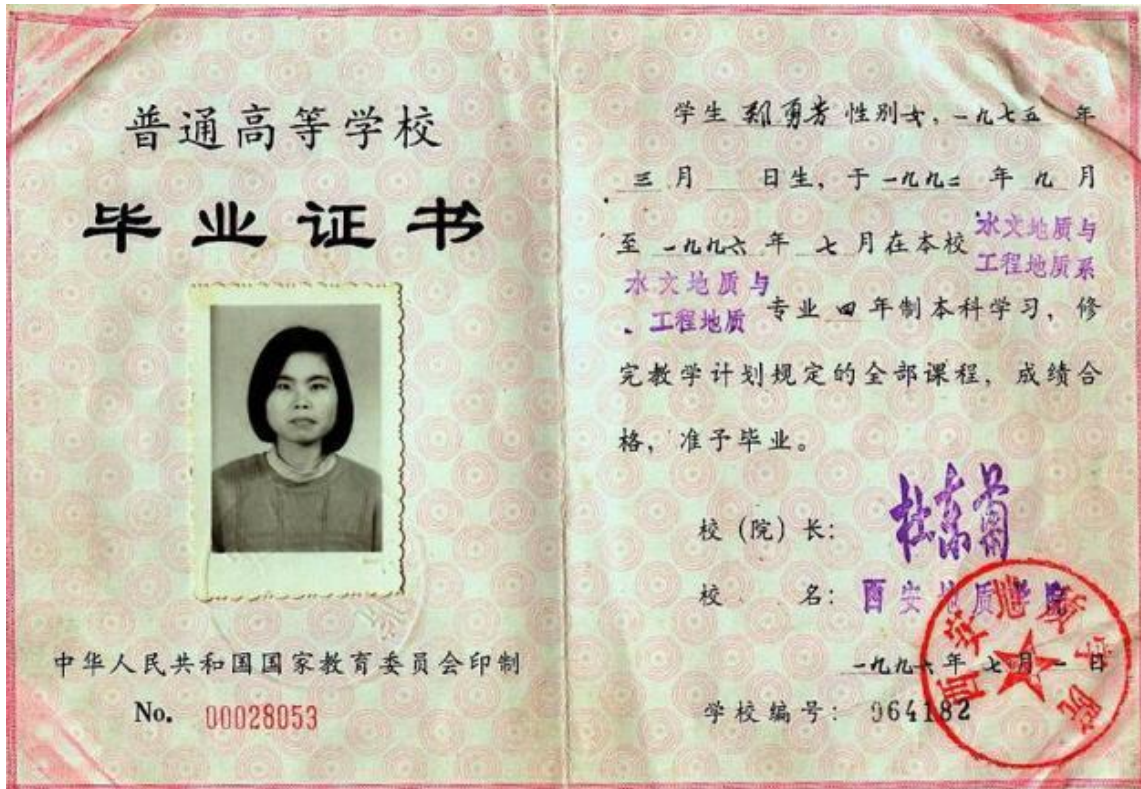 普通高等学校
毕业证书
中华人民共和国国家教育委员会印制
No. 00028053
学生 郑勇芳 性别女，一九七五 年
三 月 日生，于 一九九二 年 九 月
至 一九九六 年 七 月在本校 水文地质与工程地质系
水文地质与工程地质 专业 四 年制本科学习，修
完教学计划规定的全部课程，成绩合
格，准予毕业。
校（院）长：
校 名：西安地质学院
一九九六 年 七 月 一 日
学校编号：964182
西安地质学院